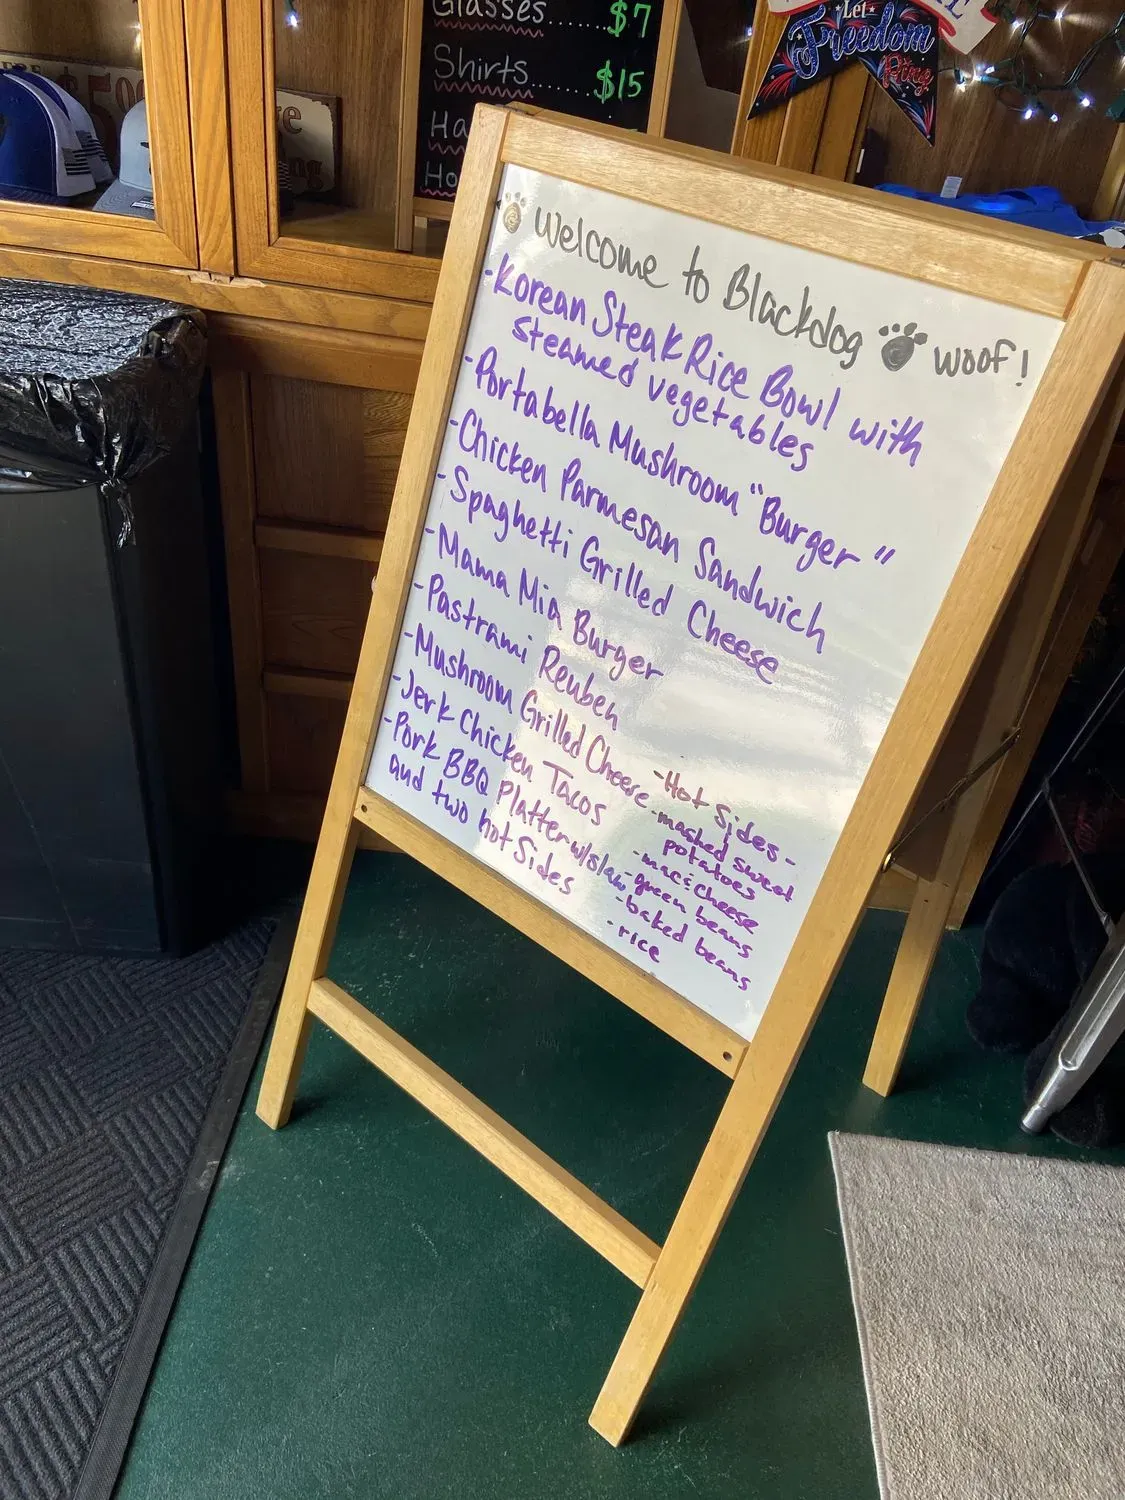 Glasses......$7
Shirts......$15
Ha
Ho
$5.00
Let
Freedom
Ring
Welcome to Blackdog woof!
-Korean Steak Rice Bowl with
steamed vegetables
-Portabella Mushroom "Burger"
-Chicken Parmesan Sandwich
-Spaghetti Grilled Cheese
-Mama Mia Burger
-Pastrami Reuben
-Mushroom Grilled Cheese
-Jerk Chicken Tacos
-Pork BBQ Platter w/slaw
and two hot Sides
-Hot Sides-
-mashed sweet
potatoes
-mac & cheese
-green beans
-baked beans
-rice